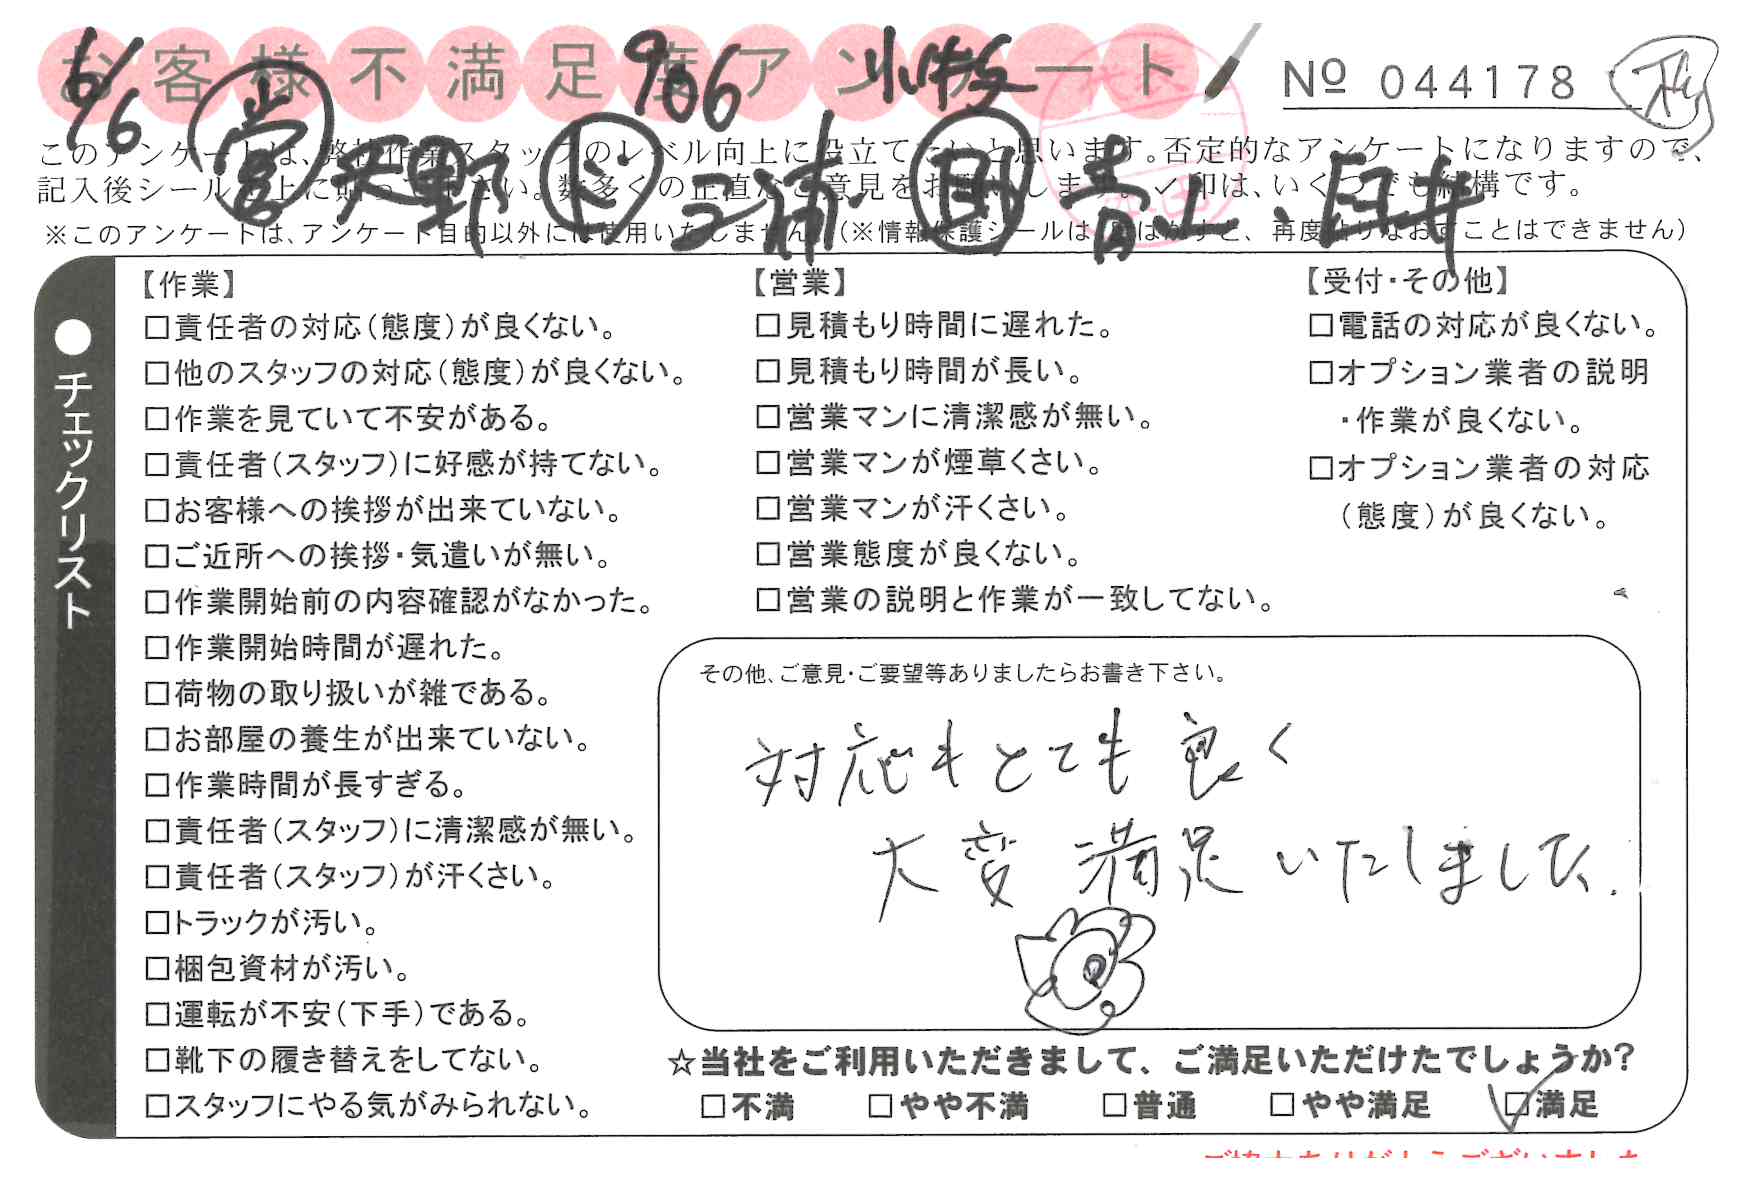 お客様不満足度アンケート
№ 044178
6/6 営 天野 ド 三浦 906 小牧 助 青山、白井
このアンケートは、弊社作業スタッフのレベル向上に役立てたいと思います。否定的なアンケートになりますので、
記入後シールを上に貼って下さい。数多くの正直なご意見をお願いします。✓印は、いくつでも結構です。
※このアンケートは、アンケート目的以外には使用いたしません。(※情報保護シールは一度はがすと、再度貼りなおすことはできません)
●チェックリスト
【作業】
□責任者の対応(態度)が良くない。
□他のスタッフの対応(態度)が良くない。
□作業を見ていて不安がある。
□責任者(スタッフ)に好感が持てない。
□お客様への挨拶が出来ていない。
□ご近所への挨拶・気遣いが無い。
□作業開始前の内容確認がなかった。
□作業開始時間が遅れた。
□荷物の取り扱いが雑である。
□お部屋の養生が出来ていない。
□作業時間が長すぎる。
□責任者(スタッフ)に清潔感が無い。
□責任者(スタッフ)が汗くさい。
□トラックが汚い。
□梱包資材が汚い。
□運転が不安(下手)である。
□靴下の履き替えをしてない。
□スタッフにやる気がみられない。
【営業】
□見積もり時間に遅れた。
□見積もり時間が長い。
□営業マンに清潔感が無い。
□営業マンが煙草くさい。
□営業マンが汗くさい。
□営業態度が良くない。
□営業の説明と作業が一致してない。
【受付・その他】
□電話の対応が良くない。
□オプション業者の説明
・作業が良くない。
□オプション業者の対応
(態度)が良くない。
その他、ご意見・ご要望等ありましたらお書き下さい。
対応もとても良く
大変満足いたしました.
☆当社をご利用いただきまして、ご満足いただけたでしょうか?
□不満 □やや不満 □普通 □やや満足 ☑満足
ご協力ありがとうございました